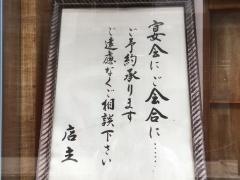 宴会にご会合に……
ご予約承ります
ご遠慮なくご相談下さい
店主